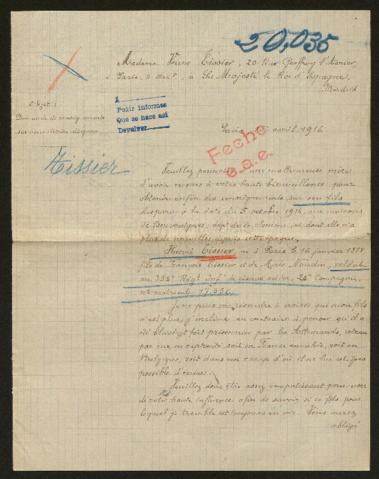 20,035
Madame Vve Tissier, 20 Rue Geoffroy l'Asnier,
à Paris, à Sa Majesté le Roi d'Espagne,
Madrid
Objet:
Demande de renseignements
A
Pedir informes
Que se hace asi
Devolver
Paris avril 1916
Fecho
Tissier
Veuillez permettre à une malheureuse mère
d'avoir recours à votre haute bienveillance pour
obtenir enfin des renseignements sur son fils
disparu à la date du 5 octobre 1914, aux environs
de dépt de la Somme, et dont elle n'a
plus de nouvelles depuis cette époque.
Tissier, né à Paris le 16 janvier 1887
fils de François Tissier et de Marie soldat
au Régt Infie 25e Compagnie,
matricule
Je ne puis me résoudre à croire que mon fils
n'est plus, j'incline au contraire à penser qu'il a
été blessé et fait prisonnier par les Allemands, retenu
par eux en captivité, soit en France envahie, soit en
Belgique, soit dans un camp d'où il ne lui est pas
possible d'écrire.
Veuillez donc être assez compatissant pour user
de votre haute influence afin de savoir si ce fils pour
lequel je tremble est toujours en vie. Vous aurez
obligé